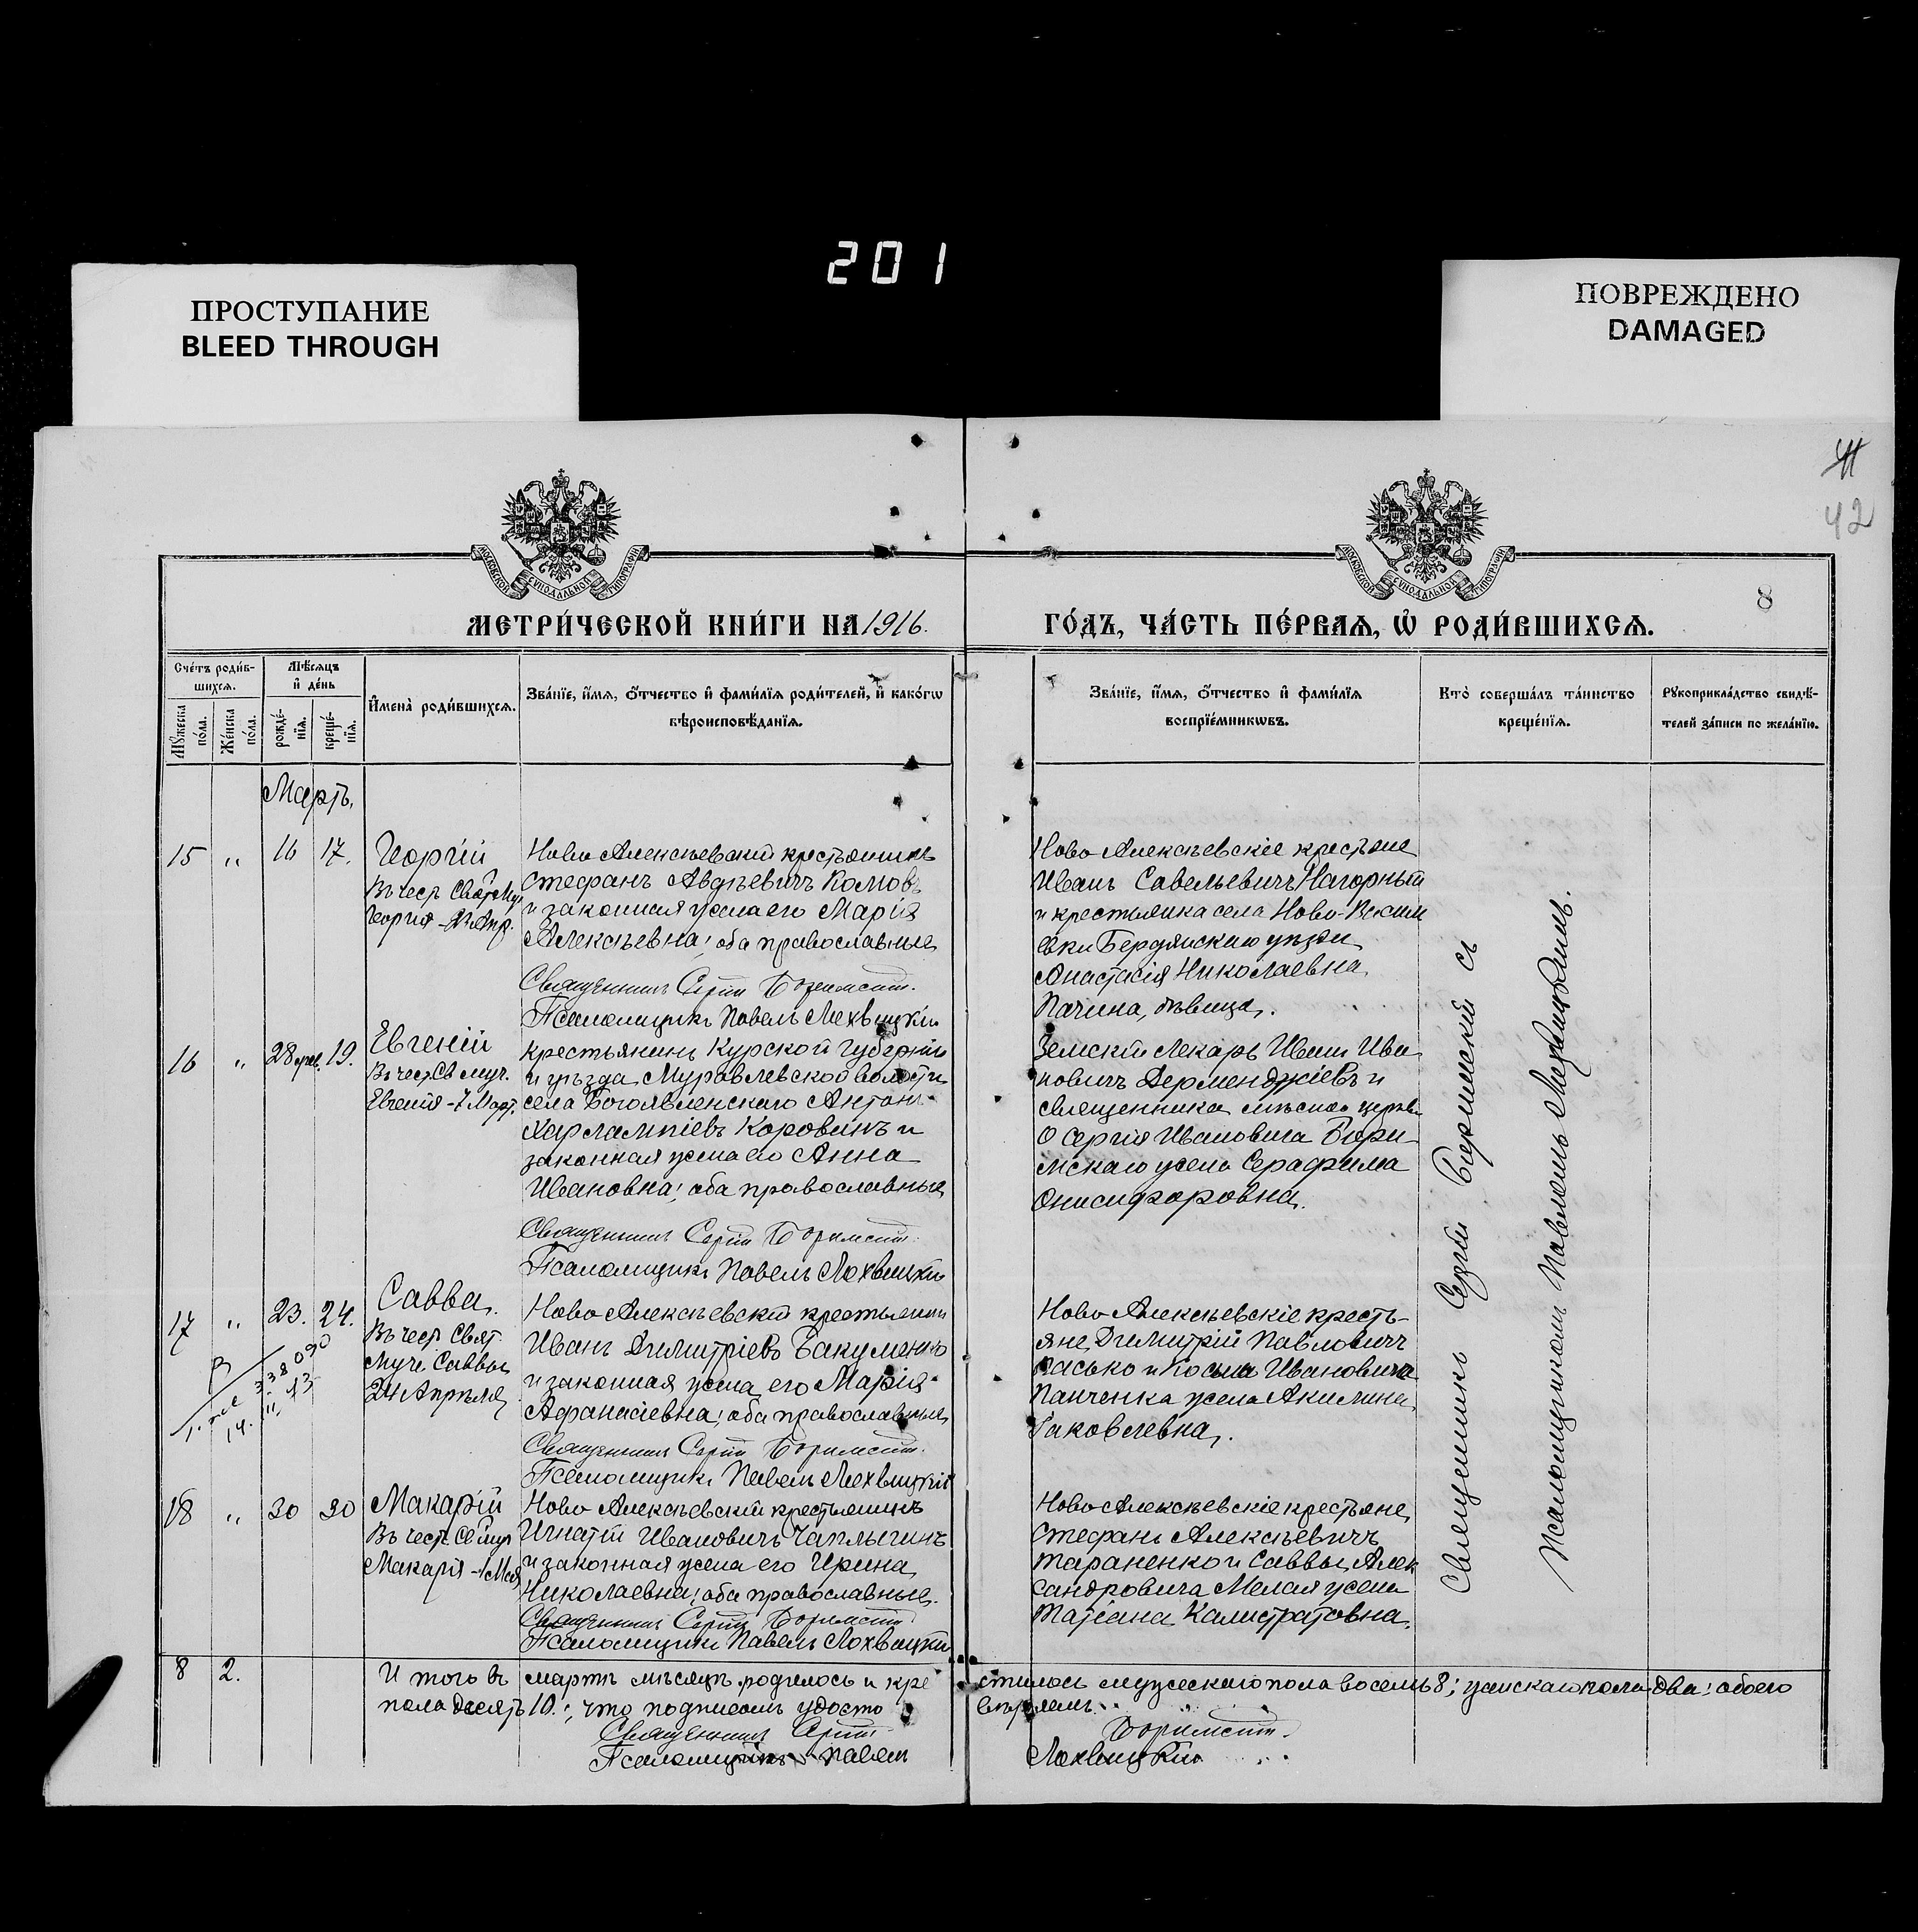 201
ПРОСТУПАНИЕ
BLEED THROUGH
ПОВРЕЖДЕНО
DAMAGED
42
8
МОСКОВСКОЙ СУНОДАЛЬНОЙ ТИПОГРАФІИ
МОСКОВСКОЙ СУНОДАЛЬНОЙ ТИПОГРАФІИ
МЕТРИ́ЧЕСКОЙ КНИ́ГИ НА 1916.
ГО́ДЪ, ЧА́СТЬ ПЕ́РВАѦ, Ѡ РОДИ́ВШИХСѦ.
Сче́тъ роди́в-
шихсѧ.
Мѣ́сѧцъ
и҆ де́нь
Мꙋ́жеска по́ла.
Же́нска по́ла.
рожде́-
нїѧ.
креще́-
нїѧ.
И҆мена̀ роди́вшихсѧ.
Зва́нїе, и҆́мѧ, ѻ҆́тчество и҆ фами́лїѧ роди́телей, и҆ како́гѡ
вѣроисповѣ́данїѧ.
Зва́нїе, и҆́мѧ, ѻ҆́тчество и҆ фами́лїѧ
воспрїе́мникѡвъ.
Кто̀ соверша́лъ та́инство
креще́нїѧ.
Рꙋкоприкла́дство свидѣ́-
телей за́писи по жела́нїю.
Мартъ.
15 " 16 17.
Георгій
Въ чест Свят Муч
Георгія - 23 Апр.
Ново Алексѣевскій крестьянинъ
Стефанъ Авдѣевичъ Комовъ
и законная жена его Марія
Алексѣевна; оба православные
Священникъ Сергій Боримскій.
Псаломщикъ Павелъ Лохвицкій
Ново Алексѣевскіе крестьяне
Иванъ Савельевичъ Нагорный
и крестьянка села Ново-
Бердянскаго уѣзда
Анастасія Николаевна
Пачина, дѣвица.
16 " 28 фев. 19.
Евгеній
Въ чест. Св муч.
Евгенія - 7 Март.
крестьянинъ Курской губерніи
и уѣзда Муравлевской волости
села Богоявленскаго Антонъ
Харлампіевъ Коровинъ и
законная жена его Анна
Ивановна; оба православные
Священникъ Сергій Боримскій.
Псаломщикъ Павелъ Лохвицкій
Земскій лекарь Иванъ Ива
новичъ Дерменджіевъ и
священника мѣсной церкви
О Сергія Ивановича Бори
мскаго жена Серафима
Онисифоровна.
17 " 23. 24.
Савва.
Въ чест Свят.
Муч. Саввы
24 Апрѣля
338090
14. III. 43
Ново Алексѣевскій крестьянин
Иванъ Димитріевъ Бакуменко
и законная жена его Марія
Афанасіевна; оба православные
Священникъ Сергій Боримскій.
Псаломщикъ Павелъ Лохвицкій
Ново Алексѣевскіе кресть-
яне Димитрій Павловичъ
Пасько и Косьма Ивановича
Панченка жена Акилина
Іаковлевна.
18 " 30 30
Макарій
Въ честь Св муч
Макарія - 1 Мая
Ново Алексѣевскій крестьянинъ
Игнатій Ивановичъ Чаплыгинъ
и законная жена его Ирина
Николаевна; оба православные.
Священникъ Сергій Боримскій
Псаломщикъ Павелъ Лохвицкій
Ново Алексѣевскіе крестьяне
Стефанъ Алексѣевичъ
Тараненко и Саввы Алек
сандровича Мелая жена
Татіана Калистратовна.
Священникъ Сергій Боримскій съ
Псаломщикомъ Павломъ Лохвицкимъ.
8 2.
И того въ мартѣ мѣсяцѣ родилось и кре стилось мужескаго пола восемь 8; женскаго пола два; обоего
пола десять 10.; что подписомъ удосто вѣряемъ.
Священникъ Сергій Боримскій.
Псаломщикъ Павелъ Лохвицкій